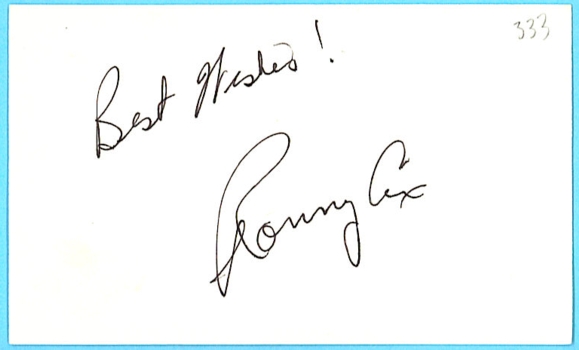 333
Best Wishes!
Ronny Cox